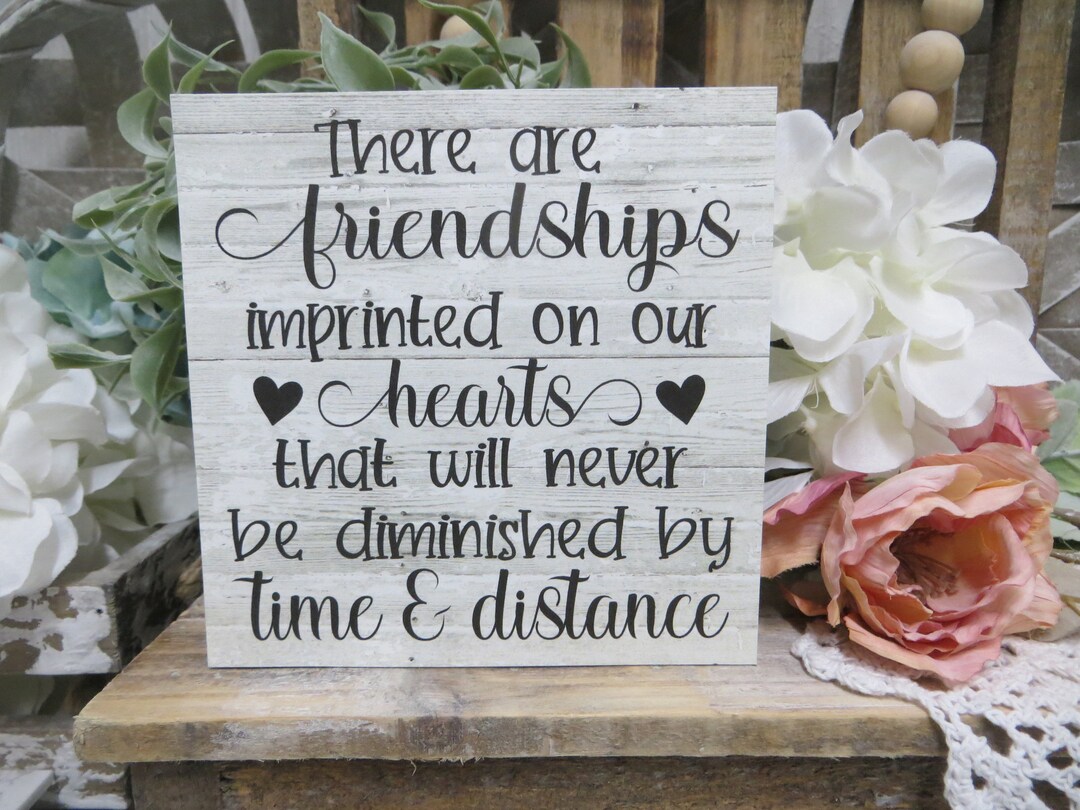 There are
friendships
imprinted on our
hearts
that will never
be diminished by
time & distance